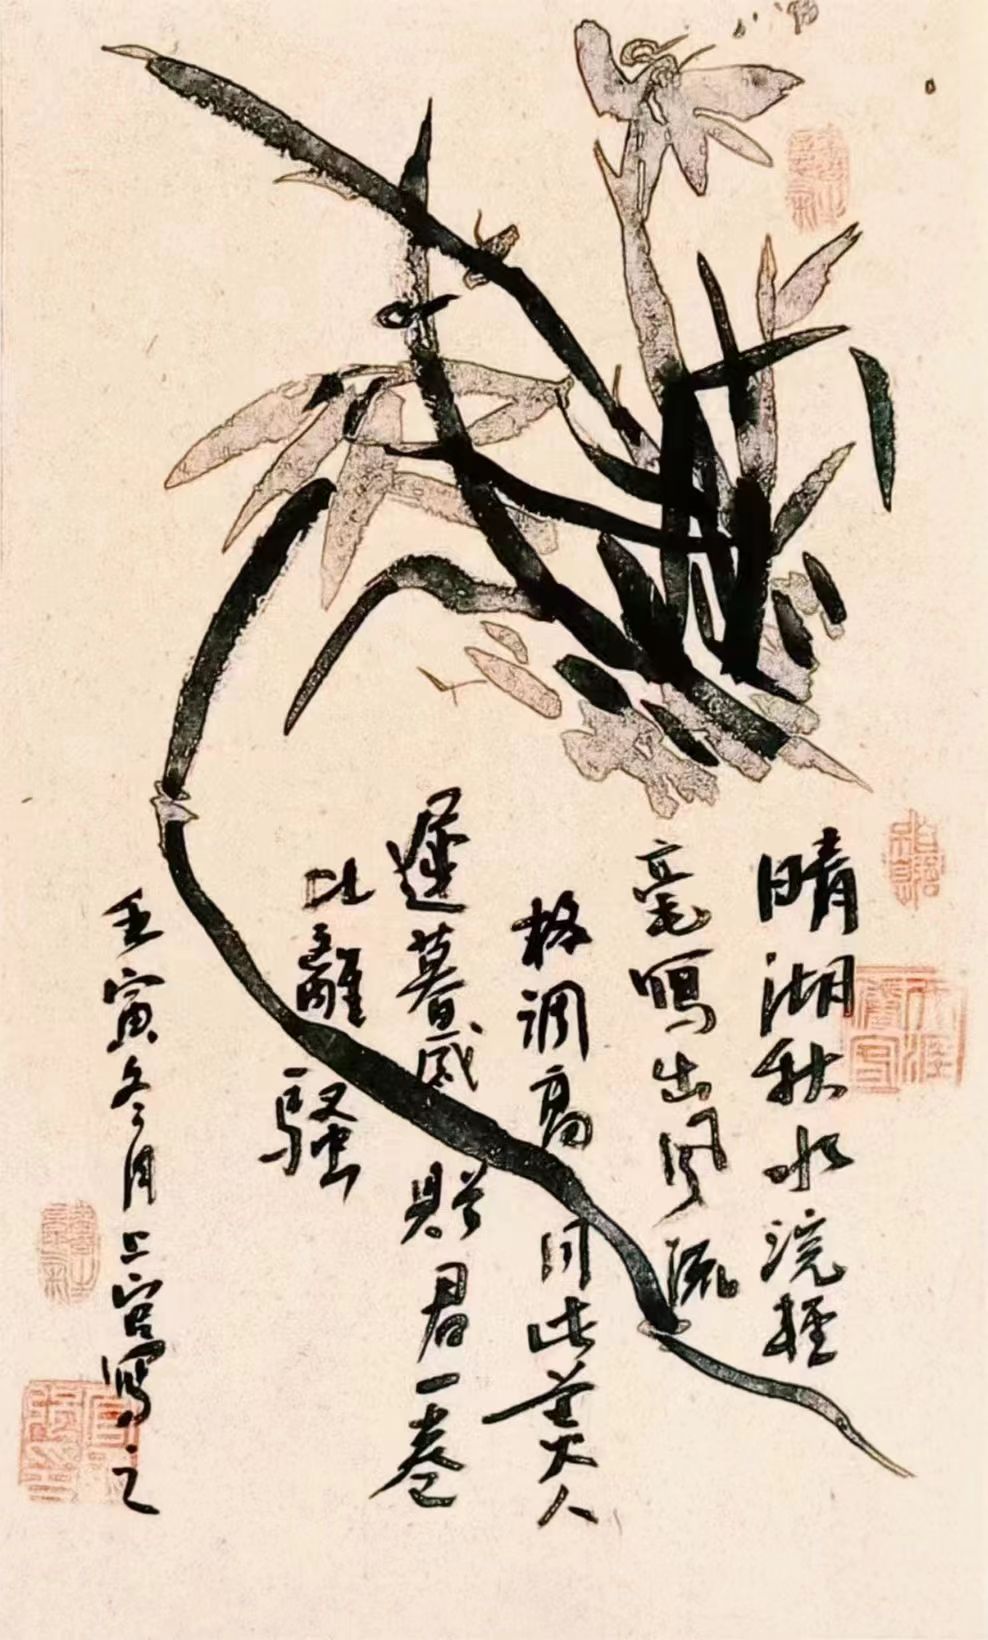 晴湖秋水浣輕
毫寫出风流
格调高同此美人
遲暮感贈君一卷
比離騷
壬寅冬月上官寫之